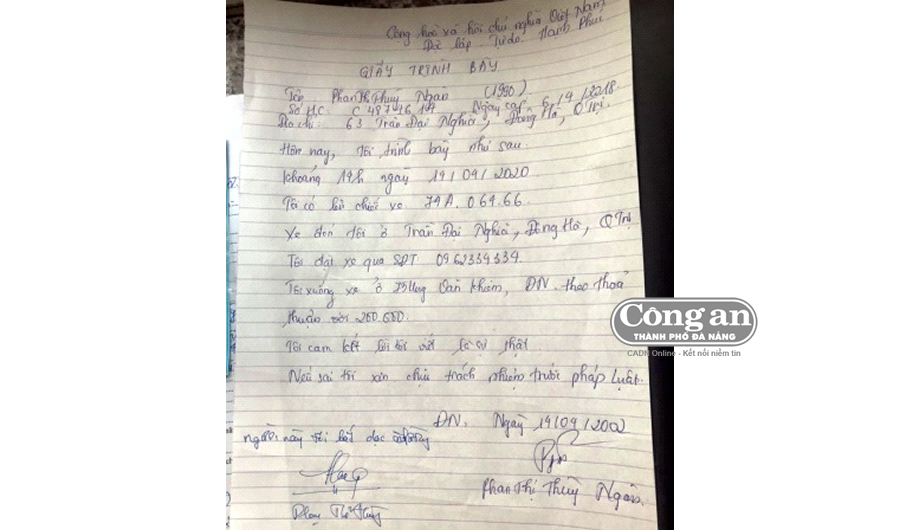 Cộng hoà xã hội chủ nghĩa Việt Nam
Độc lập Tự do Hạnh Phúc
GIẤY TRÌNH BÀY
Tên Phan Thị Thuý Ngân (1990)
Số HC: C 48 Ngày cấp 6/9/2018
Địa chỉ: 63 Trần Đại Nghĩa, Đông Hà, Q Trị.
Hôm nay, tôi trình bày như sau
Khoảng 14h ngày 19/09/2020
Tôi có đi chiếc xe 74A. 064.66
Xe đón tôi ở Trần Đại Nghĩa, Đông Hà, Q Trị
Tôi đặt xe qua SĐT 0962334334.
Tôi xuống xe ở Khiêm, ĐN. theo thoả
thuận với 200.000.
Tôi cam kết lời tôi viết là sự thật.
Nếu sai tôi xin chịu trách nhiệm trước pháp luật.
ĐN. Ngày 19/09/2002
người này viết
Phan Thị Thuỳ Ngân.
Công an
THÀNH PHỐ ĐÀ NẴNG
CADN Online - Kết nối niềm tin